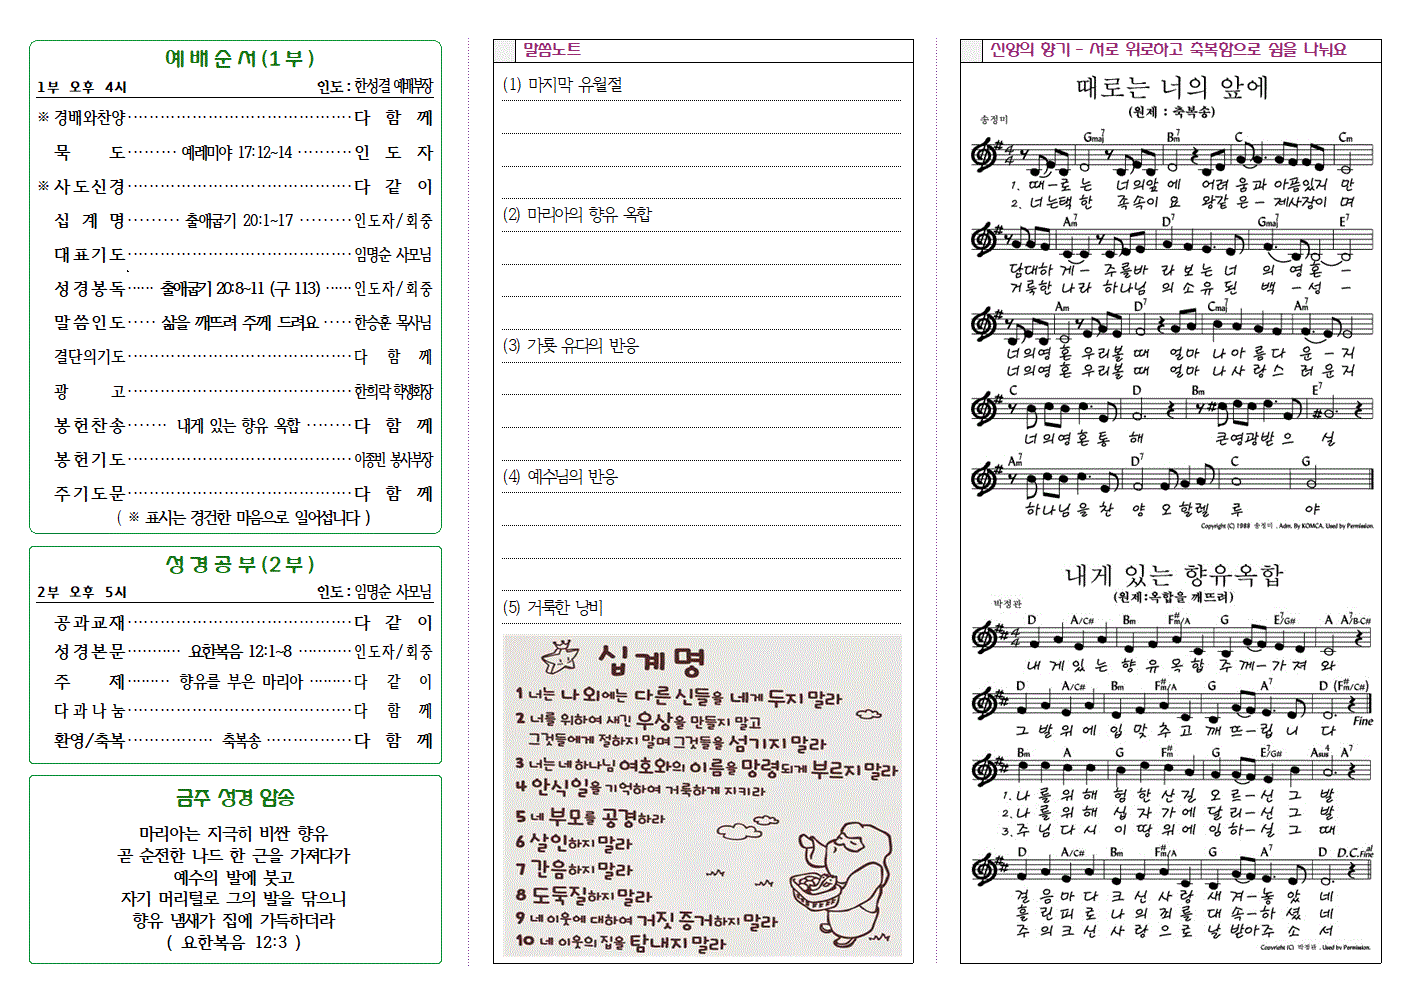 예 배 순 서 ( 1 부 )
1부 오후 4시 인도 : 한성결 예배부장
※ 경배와찬양 ········ 다 함 께
묵 도 ········ 예레미야 17:12~14 ········ 인 도 자
※ 사도신경 ········ 다 같 이
십 계 명 ········ 출애굽기 20:1~17 ········ 인도자/회중
대표기도 ········ 임명순 사모님
성경봉독 ······ 출애굽기 20:8~11 (구 113) ······ 인도자/회중
말씀인도 ····· 삶을 깨뜨려 주께 드려요 ····· 한승훈 목사님
결단의기도 ········ 다 함 께
광 고 ········ 한희락 학생회장
봉헌찬송 ······· 내게 있는 향유 옥합 ········ 다 함 께
봉헌기도 ········ 이종빈 봉사부장
주기도문 ········ 다 함 께
( ※ 표시는 경건한 마음으로 일어섭니다 )
성 경 공 부 ( 2 부 )
2부 오후 5시 인도 : 임명순 사모님
공과교재 ········ 다 같 이
성경본문 ········ 요한복음 12:1~8 ········ 인도자/회중
주 제 ········ 향유를 부은 마리아 ········ 다 같 이
다과나눔 ········ 다 함 께
환영/축복 ········ 축복송 ········ 다 함 께
금주 성경 암송
마리아는 지극히 비싼 향유
곧 순전한 나드 한 근을 가져다가
예수의 발에 붓고
자기 머리털로 그의 발을 닦으니
향유 냄새가 집에 가득하더라
( 요한복음 12:3 )
말씀노트
(1) 마지막 유월절
(2) 마리아의 향유 옥합
(3) 가룟 유다의 반응
(4) 예수님의 반응
(5) 거룩한 낭비
십계명
1 너는 나 외에는 다른 신들을 네게 두지 말라
2 너를 위하여 새긴 우상을 만들지 말고
그것들에게 절하지 말며 그것들을 섬기지 말라
3 너는 네 하나님 여호와의 이름을 망령되게 부르지 말라
4 안식일을 기억하여 거룩하게 지키라
5 네 부모를 공경하라
6 살인하지 말라
7 간음하지 말라
8 도둑질하지 말라
9 네 이웃에 대하여 거짓 증거하지 말라
10 네 이웃의 집을 탐내지 말라
신앙의 향기 - 서로 위로하고 축복함으로 쉼을 나눠요
때로는 너의 앞에
(원제 : 축복송)
송정미
Gmaj7 Bm7 C Cm
1. 때-로 는 너의앞 에 어려 움과 아픔있지 만
2. 너는택 한 족속이 요 왕같 은- 제사장이 며
Am7 D7 Gmaj7 E7
담대하 게- 주를바 라보는너 의 영혼-
거룩한 나라 하나님 의소유된 백-성-
Am D7 Cmaj7 Am7
너의영 혼 우리볼 때 얼마 나아름다 운-지
너의영 혼 우리볼 때 얼마 나사랑스 러운지
C D Bm E7
너의영혼통 해 큰영광받으 실
Am7 D7 C G
하나님을찬 양 오할렐 루 야
Copyright (C) 1988 송정미 , Adm. By KOMCA, Used by Permission.
내게 있는 향유옥합
(원제:옥합을 깨뜨려)
박정관
D A/C# Bm F#m/A G E7/G# A A7/B-C#
내게있는 향유옥합 주께-가져 와
D A/C# Bm F#m/A G A7 D (F#m/C#)
그 발위에 입맞추고 깨뜨-립니 다
Fine
Bm A G F#m G E7/G# Asus4 A7
1. 나를위해 험한산길 오르-신그 발
2. 나를위해 십자가에 달리-신그 발
3. 주님다시 이땅위에 임하-실그 때
D A/C# Bm F#m/A G A7 D D.C. al Fine
걸음마다 크신사랑 새겨-놓았 네
흘린피로 나의죄를 대속-하셨 네
주의크신 사랑으로 날받아주소 서
Copyright (C) 박정관 , Used by Permission.